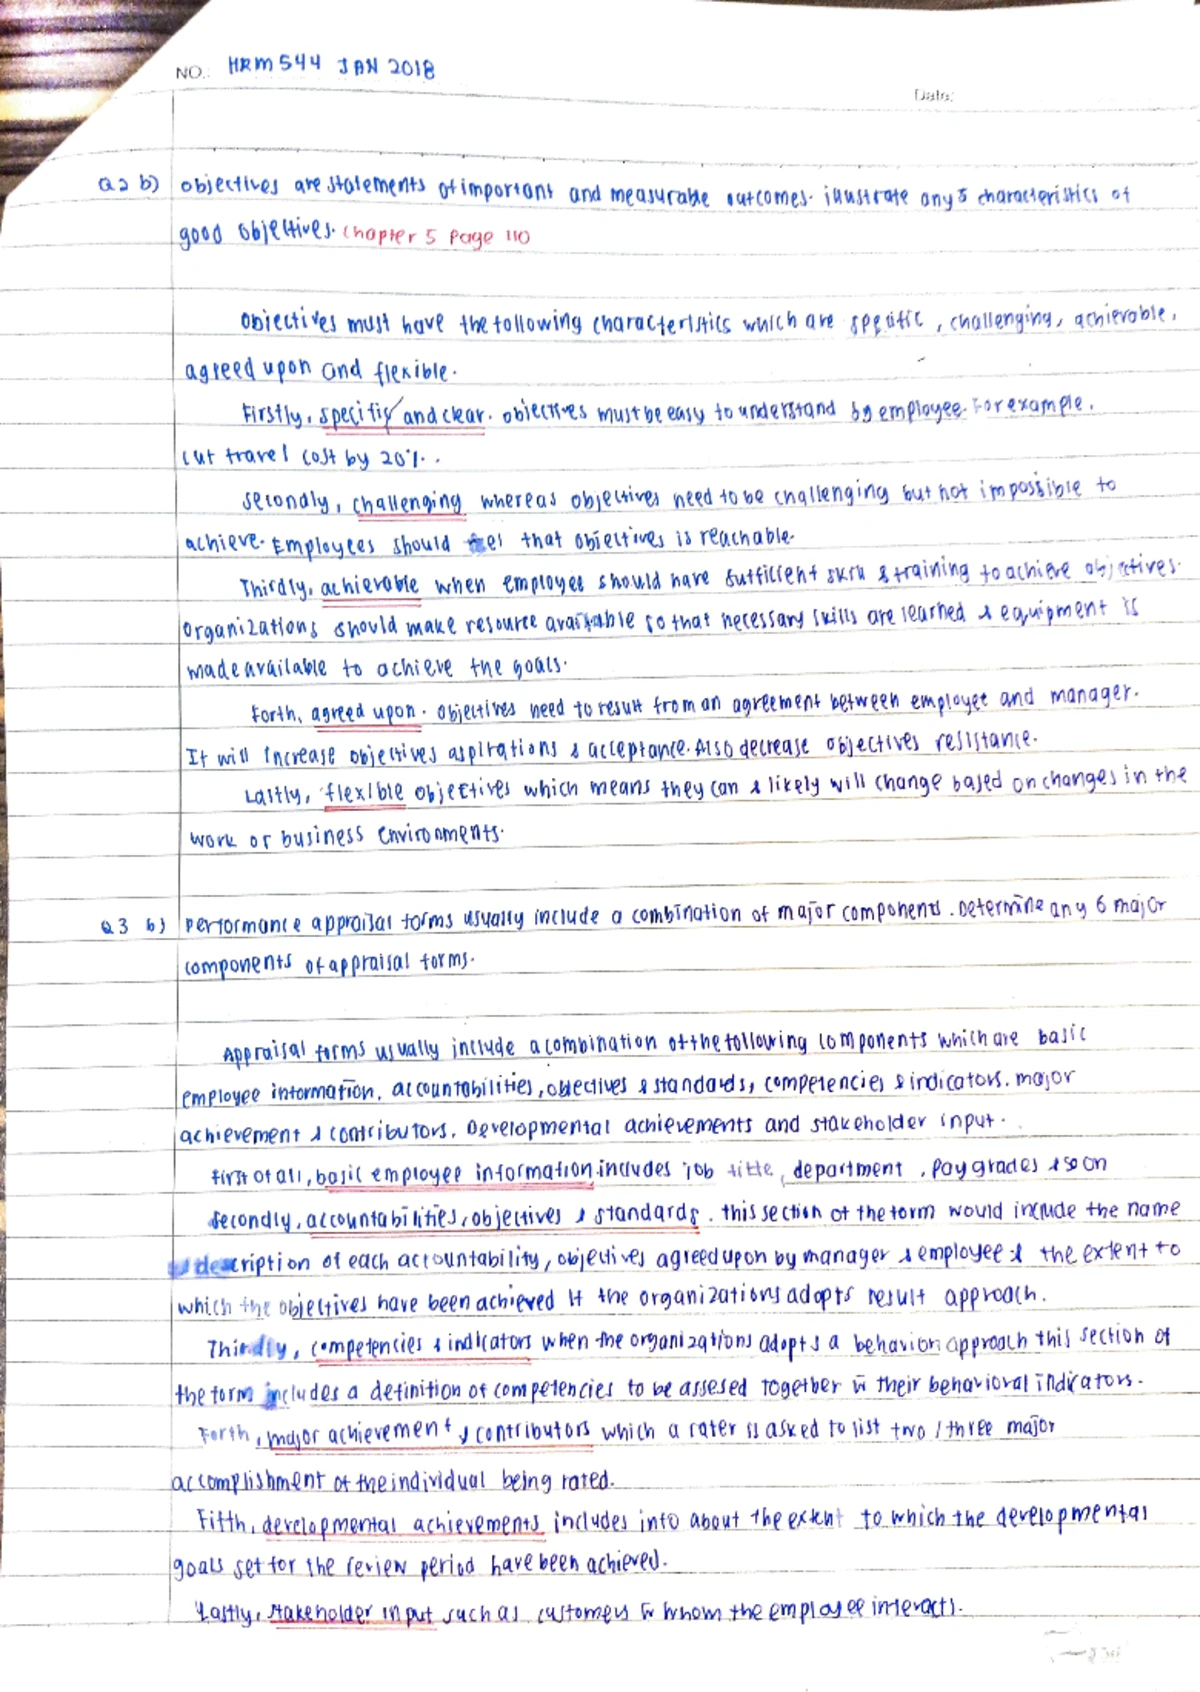 NO.: HRM 544 JAN 2018
Date:
Q2 b) Objectives are statements of important and measurable outcomes. illustrate any 5 characteristics of
good objectives. Chapter 5 Page 110
Objectives must have the following characteristics which are specific, challenging, achievable,
agreed upon and flexible.
Firstly, specific and clear. objectives must be easy to understand by employee. For example,
cut travel cost by 20%..
Secondly, challenging whereas objectives need to be challenging but not impossible to
achieve. Employees should feel that objectives is reachable.
Thirdly, achievable when employee should have sufficient skill & training to achieve objectives.
Organizations should make resource available so that necessary skills are learned & equipment is
made available to achieve the goals.
Forth, agreed upon. objectives need to result from an agreement between employee and manager.
It will increase objectives aspirations & acceptance. Also decrease objectives resistance.
Lastly, flexible objectives which means they can & likely will change based on changes in the
work or business environments.
Q3 b) performance appraisal forms usually include a combination of major components. Determine any 6 major
components of appraisal forms.
Appraisal forms usually include a combination of the following components which are basic
employee information, accountabilities, objectives & standards, competencies & indicators, major
achievement & contributors, Developmental achievements and stakeholder input.
First of all, basic employee information includes job title, department, pay grades & so on
Secondly, accountabilities, objectives & standards. this section of the form would include the name
description of each accountability, objectives agreed upon by manager & employee & the extent to
which the objectives have been achieved if the organizations adopts result approach.
Thirdly, competencies & indicators when the organizations adopts a behavior approach this section of
the form includes a definition of competencies to be assesed together w their behavioral indicators.
Forth, major achievement & contributors which a rater is asked to list two / three major
accomplishment of the individual being rated.
Fifth, developmental achievements includes info about the extent to which the developmental
goals set for the review period have been achieved.
Lastly, stakeholder input such as customers w whom the employee interacts.